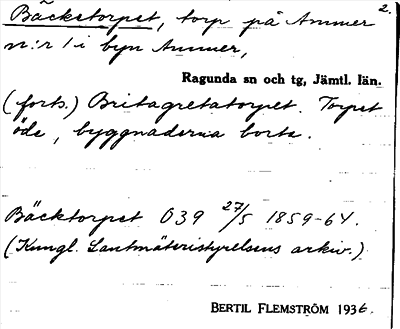 2.
Bäckstorpet, torp på Ammer
n:r 1 i byn Ammer,
Ragunda sn och tg, Jämtl. län.
(forts.) Britagretatorpet. Torpet
öde, byggnaderna borta.
Bäcktorpet O39 27/5 1859-64.
(Kungl. Lantmäteristyrelsens arkiv.)
BERTIL FLEMSTRÖM 1936.